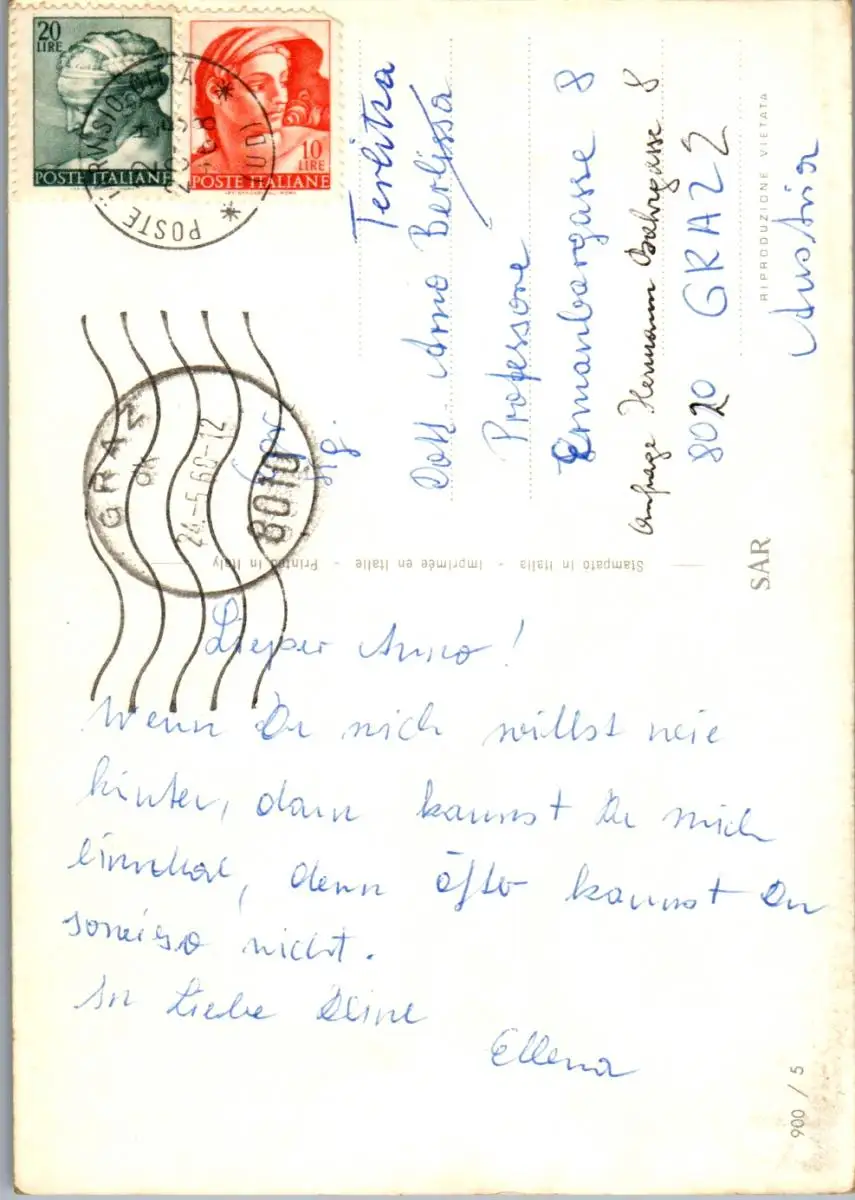 20
LIRE
POSTE ITALIANE
10
LIRE
POSTE ITALIANE
POSTE
(UD)
GRAZ
24.-5.69-12
8010
Sig.
Terlitza
Dott. Arno Berlissa
Professore
Ermanbargasse 8
Anfrage Hermann Bahrgasse 8
8020 GRAZ 2
Austria
RIPRODUZIONE VIETATA
SAR
Stampato in Italia - Imprimée en Italie - Printed in Italy
Lieper Arno!
Wenn Du mich willst wie
hinter, dann kannst Du mich
einmal, denn öfter kannst Du
sowieso nicht.
In Liebe Deine
Ellena
900 / 5